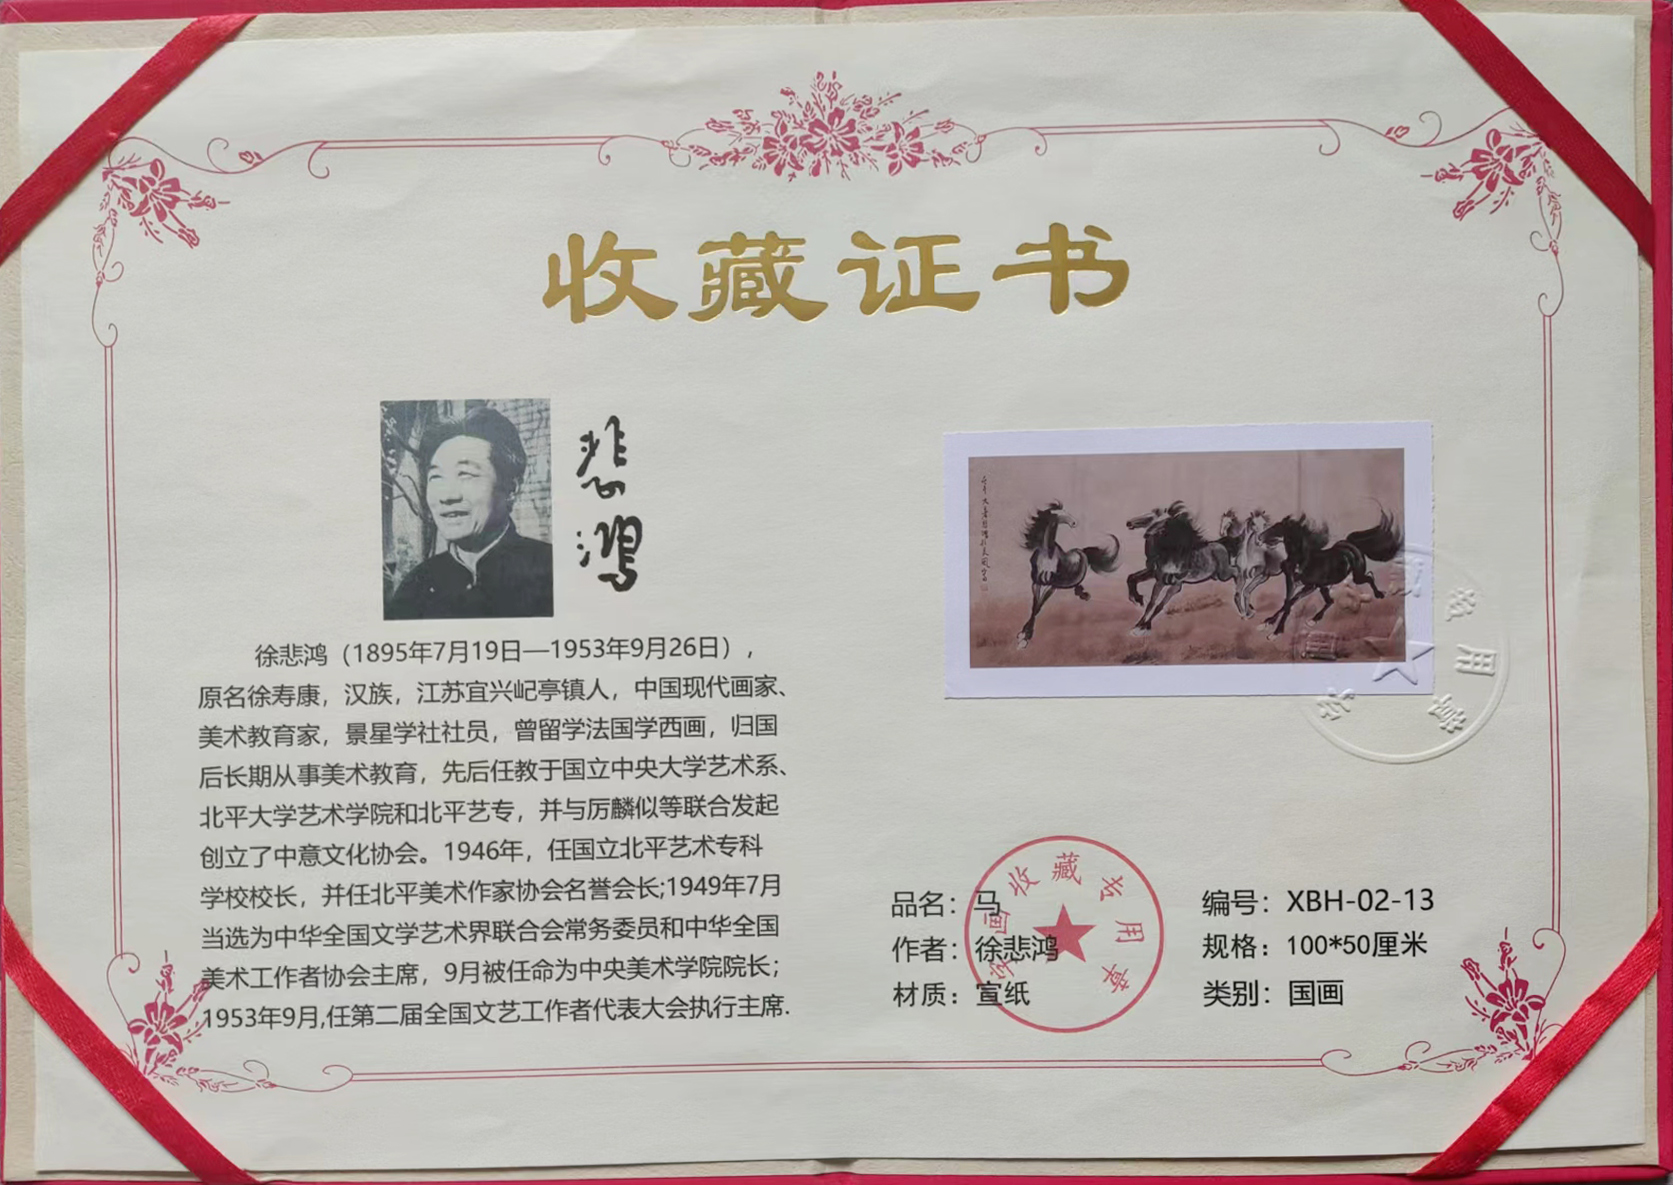 收藏证书
悲鸿
徐悲鸿（1895年7月19日—1953年9月26日），
原名徐寿康，汉族，江苏宜兴屺亭镇人，中国现代画家、
美术教育家，景星学社社员，曾留学法国学西画，归国
后长期从事美术教育，先后任教于国立中央大学艺术系、
北平大学艺术学院和北平艺专，并与厉麟似等联合发起
创立了中意文化协会。1946年，任国立北平艺术专科
学校校长，并任北平美术作家协会名誉会长;1949年7月
当选为中华全国文学艺术界联合会常务委员和中华全国
美术工作者协会主席，9月被任命为中央美术学院院长；
1953年9月,任第二届全国文艺工作者代表大会执行主席.
品名：马
编号：XBH-02-13
作者：徐悲鸿
规格：100*50厘米
材质：宣纸
类别：国画
字画收藏专用章
藏专用章